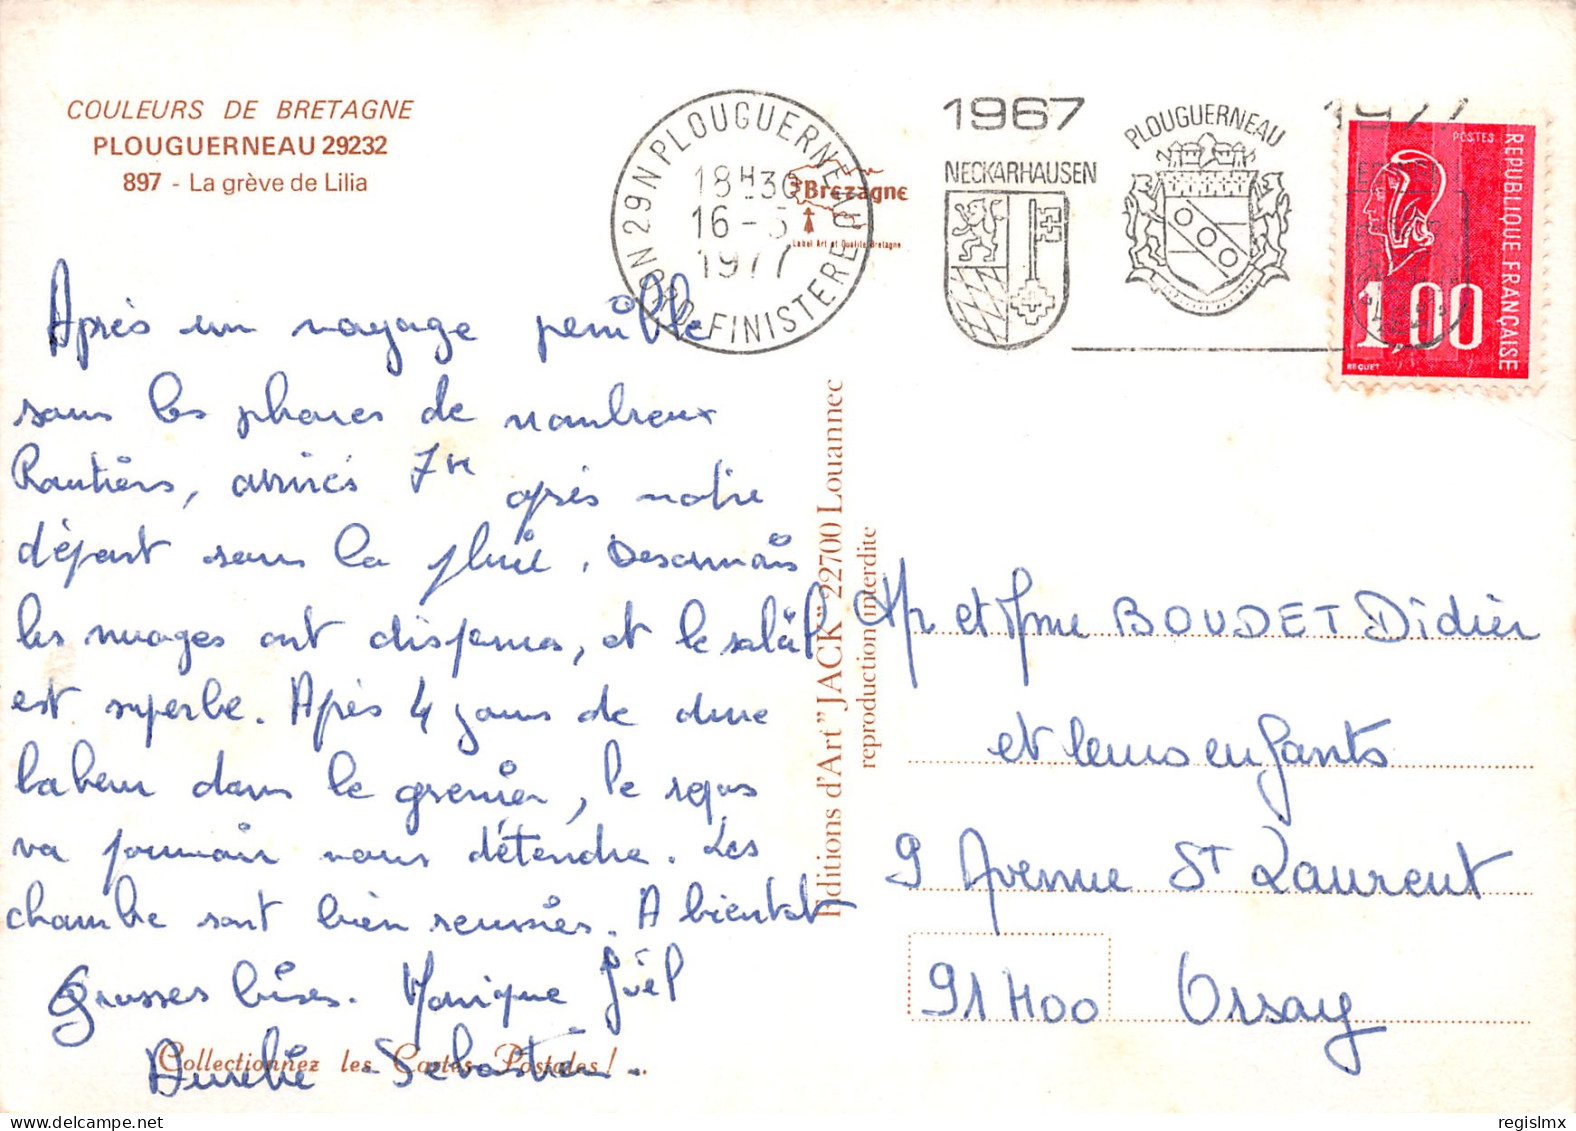 COULEURS DE BRETAGNE
PLOUGUERNEAU 29232
897 - La grève de Lilia
29 N PLOUGUERNEAU
NORD-FINISTERE
18H30
16-5
1977
Brezagne
Label Art et Qualité Bretagne
1967
NECKARHAUSEN
PLOUGUERNEAU
1977
POSTES
REPUBLIQUE FRANÇAISE
1,00
BEQUET
Après un voyage pénible
sous les phares de nombreux
Routiers, arrivés 7h après notre
départ sous la pluie. Désormais
les nuages ont disparus, et le soleil
est superbe. Après 4 jours de dure
labeur dans le grenier, le repos
va pouvoir nous détendre. Les
chambre sont bien reussies. A bientôt
Grosses bises. Monique Joël
Aurélie Sebastien.
Collectionnez les Cartes Postales !
Editions d'Art "JACK" 22700 Louannec
reproduction interdite
Mr et Mme BOUDET Didier
et leurs enfants
9 Avenue St Laurent
91400 Orsay
regislmx